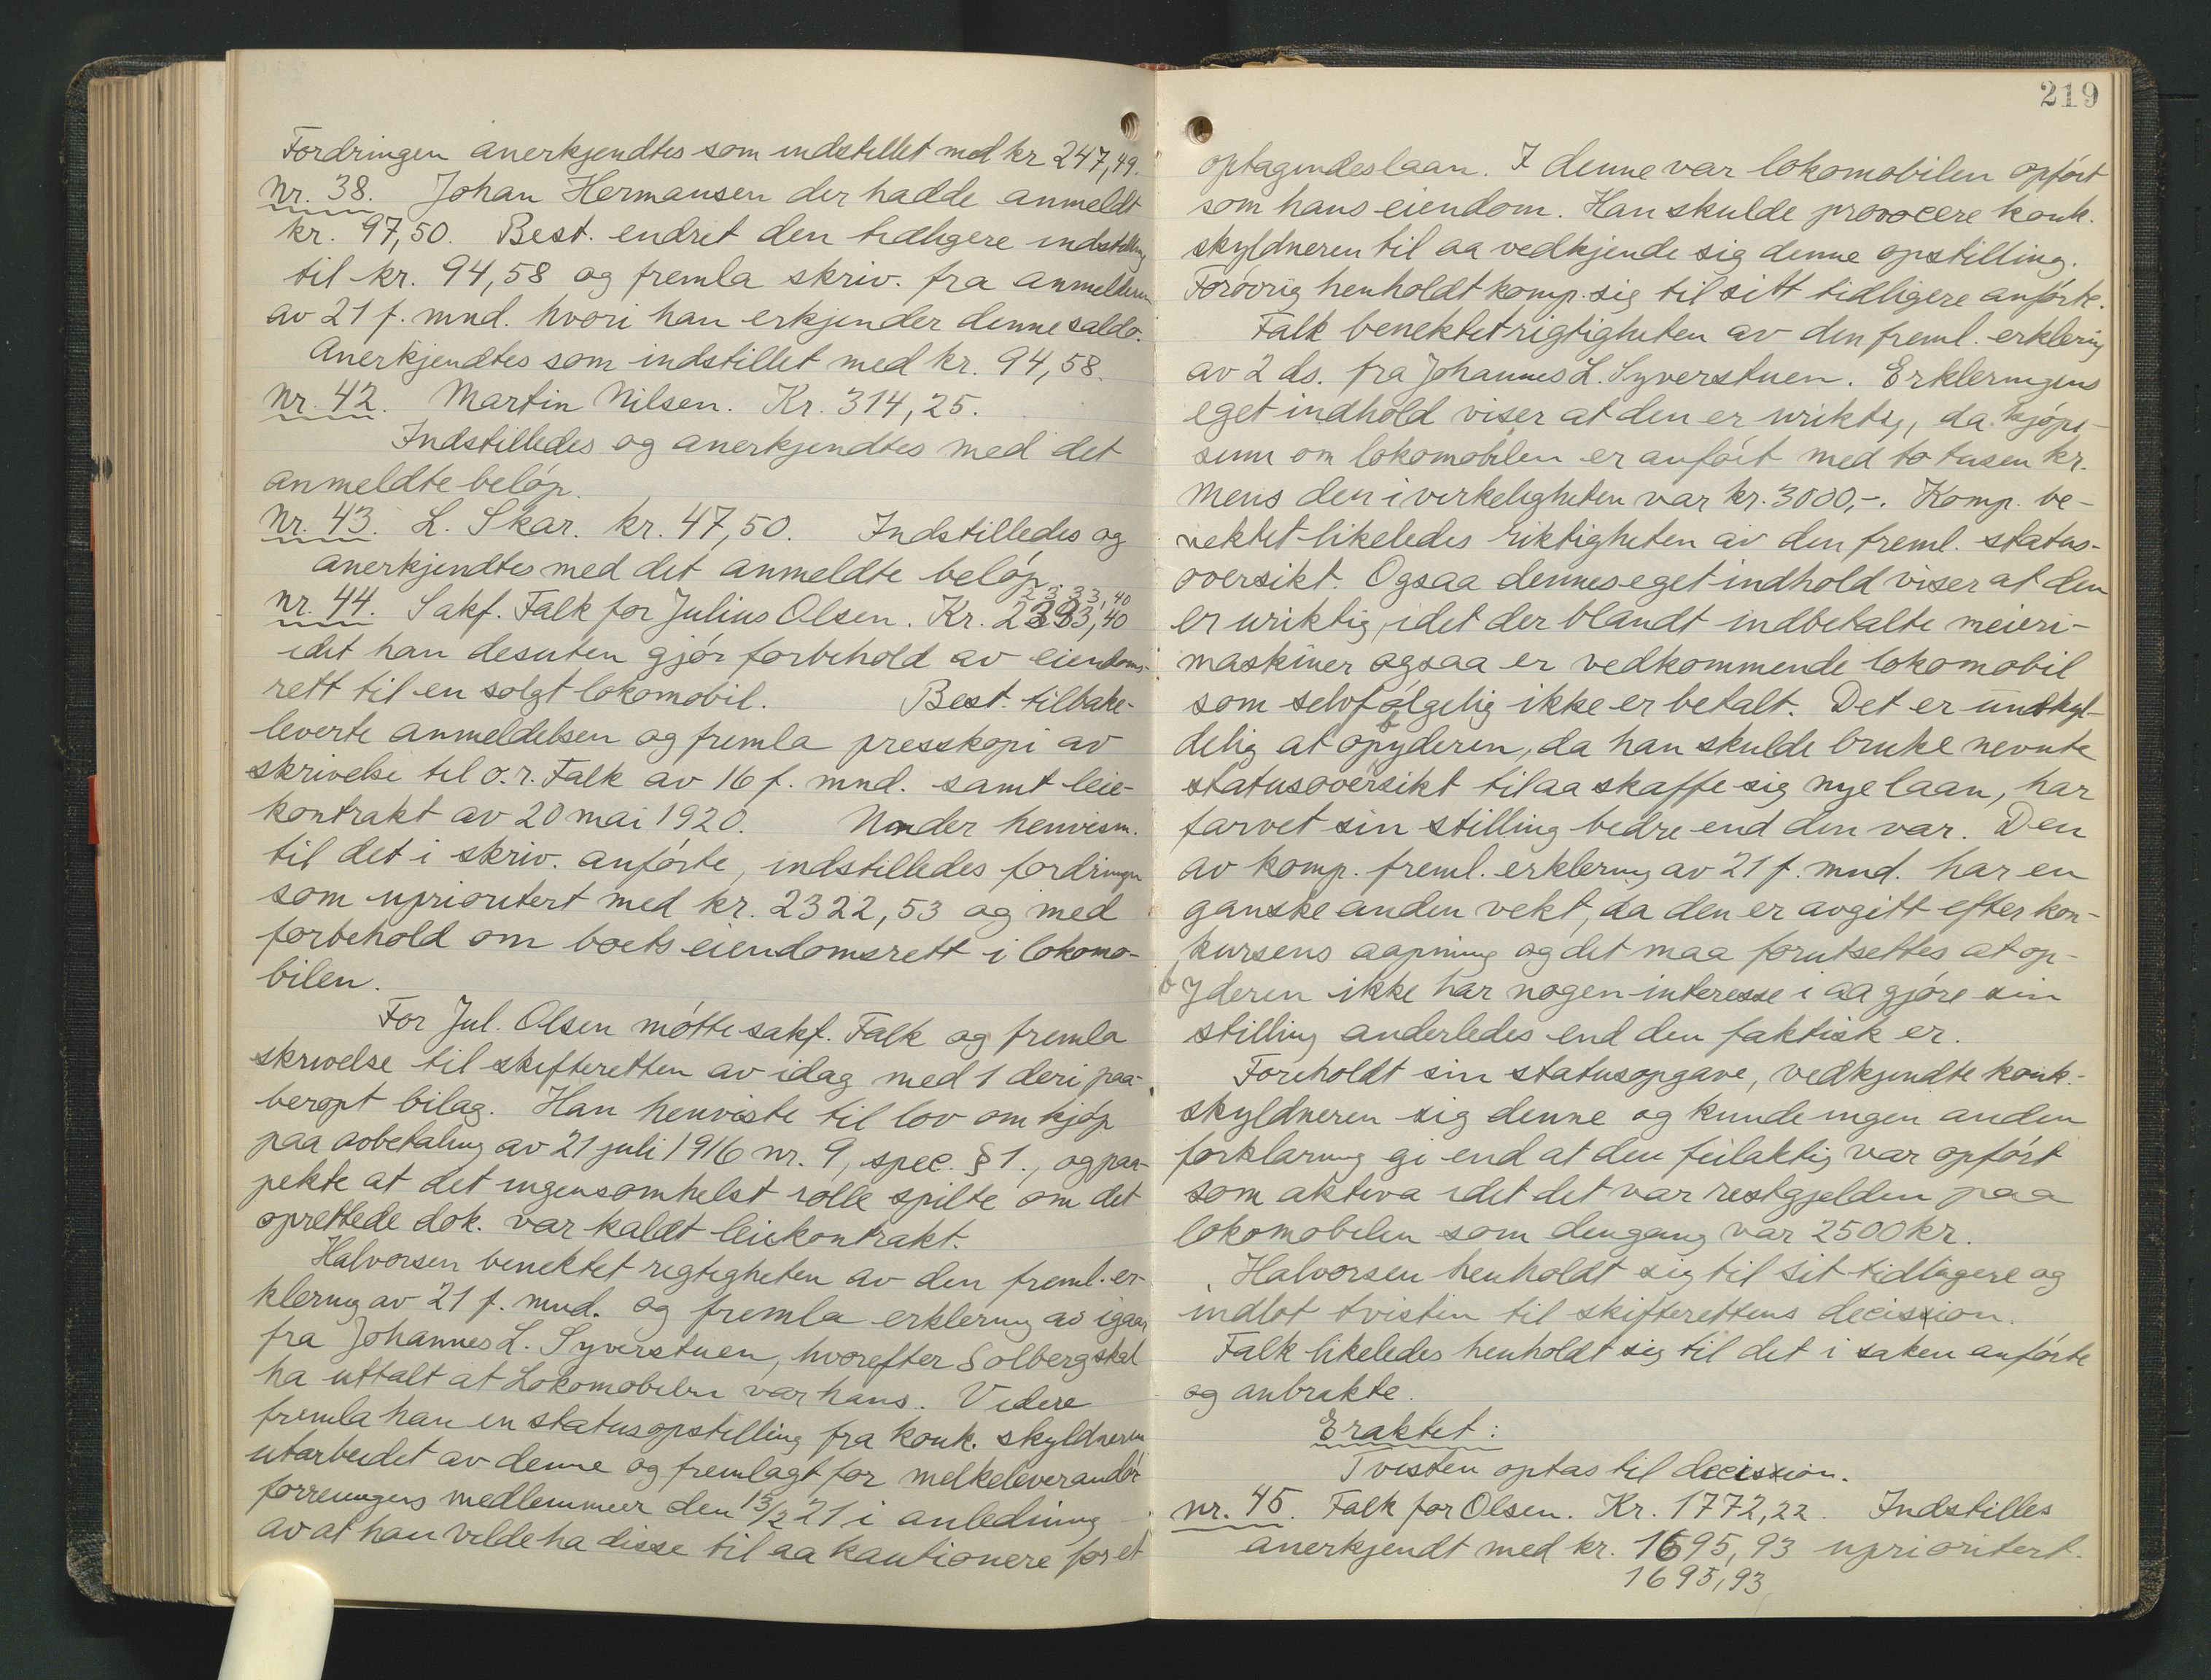 Fordringen anerkjendtes som indstillet med kr 247,49.
Nr. 38. Johan Hermansen der hadde anmeldt
kr. 97,50. Best. endret den tidligere indstilling
til kr. 94,58 og fremla skriv. fra anmelderen
av 21 f. mnd. hvori han erkjender denne saldo.
Anerkjendtes som indstillet med kr. 94,58.
Nr. 42. Martin Nilsen. Kr. 314,25.
Indstilledes og anerkjendtes med det
anmeldte beløp.
Nr. 43. L. Skar. kr. 47,50. Indstilledes og
anerkjendtes med det anmeldte beløp.
2333,40
Nr. 44. Sakf. Falk for Julius Olsen. Kr. 2333,40
idet han desuten gjør forbehold av eiendoms-
rett til en solgt lokomobil. Best. tilbake-
leverte anmeldelsen og fremla presskopi av
skrivelse til o.r. Falk av 16 f. mnd. samt leie-
kontrakt av 20 mai 1920. Under henvisn.
til det i skriv. anførte, indstilledes fordringen
som uprioritert med kr. 2322,53 og med
forbehold om boets eiendomsrett i lokomo-
bilen.
For Jul. Olsen møtte sakf. Falk og fremla
skrivelse til skifteretten av idag med 1 deri paa-
beropt bilag. Han henviste til lov om kjøp
paa avbetaling av 21 juli 1916 nr. 9, spec. § 1., og paa-
pekte at det ingensomhelst rolle spilte om det
oprettede dok. var kaldt leiekontrakt.
Halvorsen benektet rigtigheten av den freml. er-
klering av 21 f. mnd. og fremla erklering av igaar
fra Johannes L. Syverstuen, hvorefter Solberg skal
ha uttalt at Lokomobilen var hans. Videre
fremla han en statusopstilling fra konk. skyldneren
utarbeidet av denne og fremlagt for melkeleverandør
foreningens medlemmer den 15/2 21 i anledning
av at han vilde ha disse til aa kautionere for et
219
optagendes laan. I denne var lokomobilen opført
som hans eiendom. Han skulde provocere konk.
skyldneren til aa vedkjende sig denne opstilling.
Forøvrig henholdt komp. sig til sitt tidligere anførte.
Falk benektet rigtigheten av den freml. erklering
av 2 ds. fra Johannes L. Syverstuen. Erkleringens
eget indhold viser at den er uriktig, da kjøpe-
sum om lokomobilen er anført med to tusen kr.
mens den i virkeligheten var kr. 3000,-. Komp. be-
nektet likeledes riktigheten av den freml. status-
oversikt. Ogsaa dennes eget indhold viser at den
er uriktig, idet der blandt indbetalte meieri-
maskiner ogsaa er vedkommende lokomobil
som selvfølgelig ikke er betalt. Det er undskyl-
delig at opbyderen, da han skulde bruke nevnte
statusoversikt til aa skaffe sig nye laan, har
farvet sin stilling bedre end den var. Den
av komp. freml. erklering av 21 f. mnd. har en
ganske anden vekt, da den er avgitt efter kon-
kursens aapning og det maa forutsettes at op-
byderen ikke har nogen interesse i aa gjøre sin
stilling anderledes end den faktisk er.
Foreholdt sin statusopgave, vedkjendte konk.-
skyldneren sig denne og kunde ingen anden
forklaring gi end at den feilaktig var opført
som aktiva idet det var restgjelden paa
lokomobilen som dengang var 2500 kr.
Halvorsen henholdt sig til sit tidligere og
indlot tvisten til skifterettens decission.
Falk likeledes henholdt sig til det i saken anførte
og anbrakte.
Eraktet:
Tvisten optas til decission.
Nr. 45. Falk for Olsen. Kr. 1772,22. Indstilles
anerkjendt med kr. 1695,93 uprioritert.
1695,93